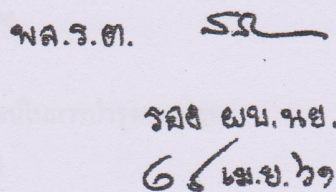 พล.ร.ต.
รอง ผบ.นย.
เม.ย. ๖๑